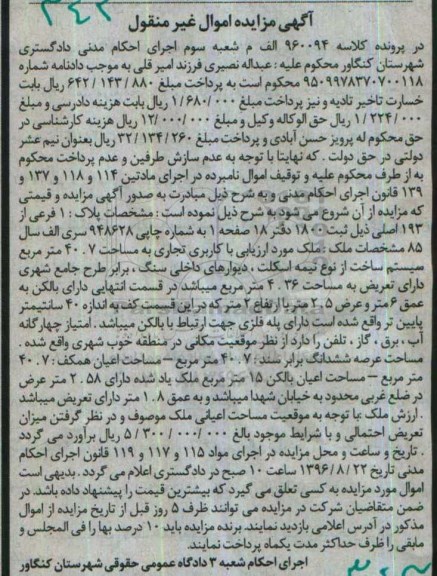 آگهی مزایده اموال غیر منقول
در پرونده کلاسه ۹۶۰۰۹۴ الف م شعبه سوم اجرای احکام مدنی دادگستری
شهرستان کنگاور محکوم علیه : عبداله نصیری فرزند امیر قلی به موجب دادنامه شماره
۹۵۰۹۹۷۸۳۷۰۷۰۰۱۱۸ محکوم است به پرداخت مبلغ ۶۴۲/۱۴۳/۸۸۰ ریال بابت
خسارت تاخیر تادیه و نیز پرداخت مبلغ ۱/۶۸۰/۰۰۰ ریال بابت هزینه دادرسی و مبلغ
۱/۲۲۴/۰۰۰ ریال حق الوکاله وکیل و مبلغ ۱۲/۰۰۰/۰۰۰ ریال هزینه کارشناسی در
حق محکوم له پرویز حسن آبادی و پرداخت مبلغ ۳۲/۱۳۴/۲۶۰ ریال بعنوان نیم عشر
دولتی در حق دولت . که نهایتا با توجه به عدم سازش طرفین و عدم پرداخت محکوم
به از طرف محکوم علیه و توقیف اموال نامبرده در اجرای مادتین ۱۱۴ و ۱۱۸ و ۱۳۷ و
۱۳۹ قانون اجرای احکام مدنی و به شرح ذیل مبادرت به صدور آگهی مزایده و قیمتی
که مزایده از آن شروع می شود به شرح ذیل نموده است : مشخصات پلاک : ۱ فرعی از
۱۹۳ اصلی ذیل ثبت ۱۸۰۰ دفتر ۱۸ صفحه ۱ به شماره چاپی ۹۴۸۶۲۸ سری الف سال
۸۵ مشخصات ملک : ملک مورد ارزیابی با کاربری تجاری به مساحت ۴۰.۷ متر مربع
سیستم ساخت از نوع نیمه اسکلت ، دیوارهای داخلی سنگ ، برابر طرح جامع شهری
دارای تعریض به مساحت ۴.۳۶ متر مربع میباشد در قسمت انتهایی دارای بالکن به
عمق ۶ متر و عرض ۲.۵ متر با ارتفاع ۲ متر که در این قسمت کف به اندازه ۴۰ سانتیمتر
پایین تر واقع شده است دارای پله فلزی جهت ارتباط با بالکن میباشد . امتیاز چهارگانه
آب ، برق ، گاز ، تلفن را دارد از نظر موقعیت مکانی در منطقه خوب شهری واقع شده .
مساحت عرصه ششدانگ برابر سند : ۴۰.۷ متر مربع – مساحت اعیان همکف : ۴۰.۷
متر مربع – مساحت اعیان بالکن ۱۵ متر مربع ملک یاد شده دارای ۲.۵۸ متر عرض
در ضلع غربی محدود به خیابان شهدا میباشد و به عمق ۱.۸ متر دارای تعریض میباشد
. ارزش ملک : با توجه به موقعیت مساحت اعیانی ملک موصوف و در نظر گرفتن میزان
تعریض احتمالی و با شرایط موجود بالغ ۵/۳۰۰/۰۰۰/۰۰۰ ریال برآورد می گردد
. تاریخ و ساعت و محل مزایده در اجرای مواد ۱۱۵ و ۱۱۷ و ۱۱۹ قانون اجرای احکام
مدنی تاریخ ۱۳۹۶/۸/۲۲ ساعت ۱۰ صبح در دادگستری اعلام می گردد . بدیهی است
اموال مورد مزایده به کسی تعلق می گیرد که بیشترین قیمت را پیشنهاد داده باشد. در
ضمن متقاضیان شرکت در مزایده می توانند ظرف ۵ روز قبل از تاریخ مزایده از اموال
مذکور در آدرس اعلامی بازدید نمایند. برنده مزایده باید ۱۰ درصد بها را فی المجلس و
مابقی را ظرف حداکثر مدت یکماه پرداخت نمایند.
اجرای احکام شعبه ۳ دادگاه عمومی حقوقی شهرستان کنگاور